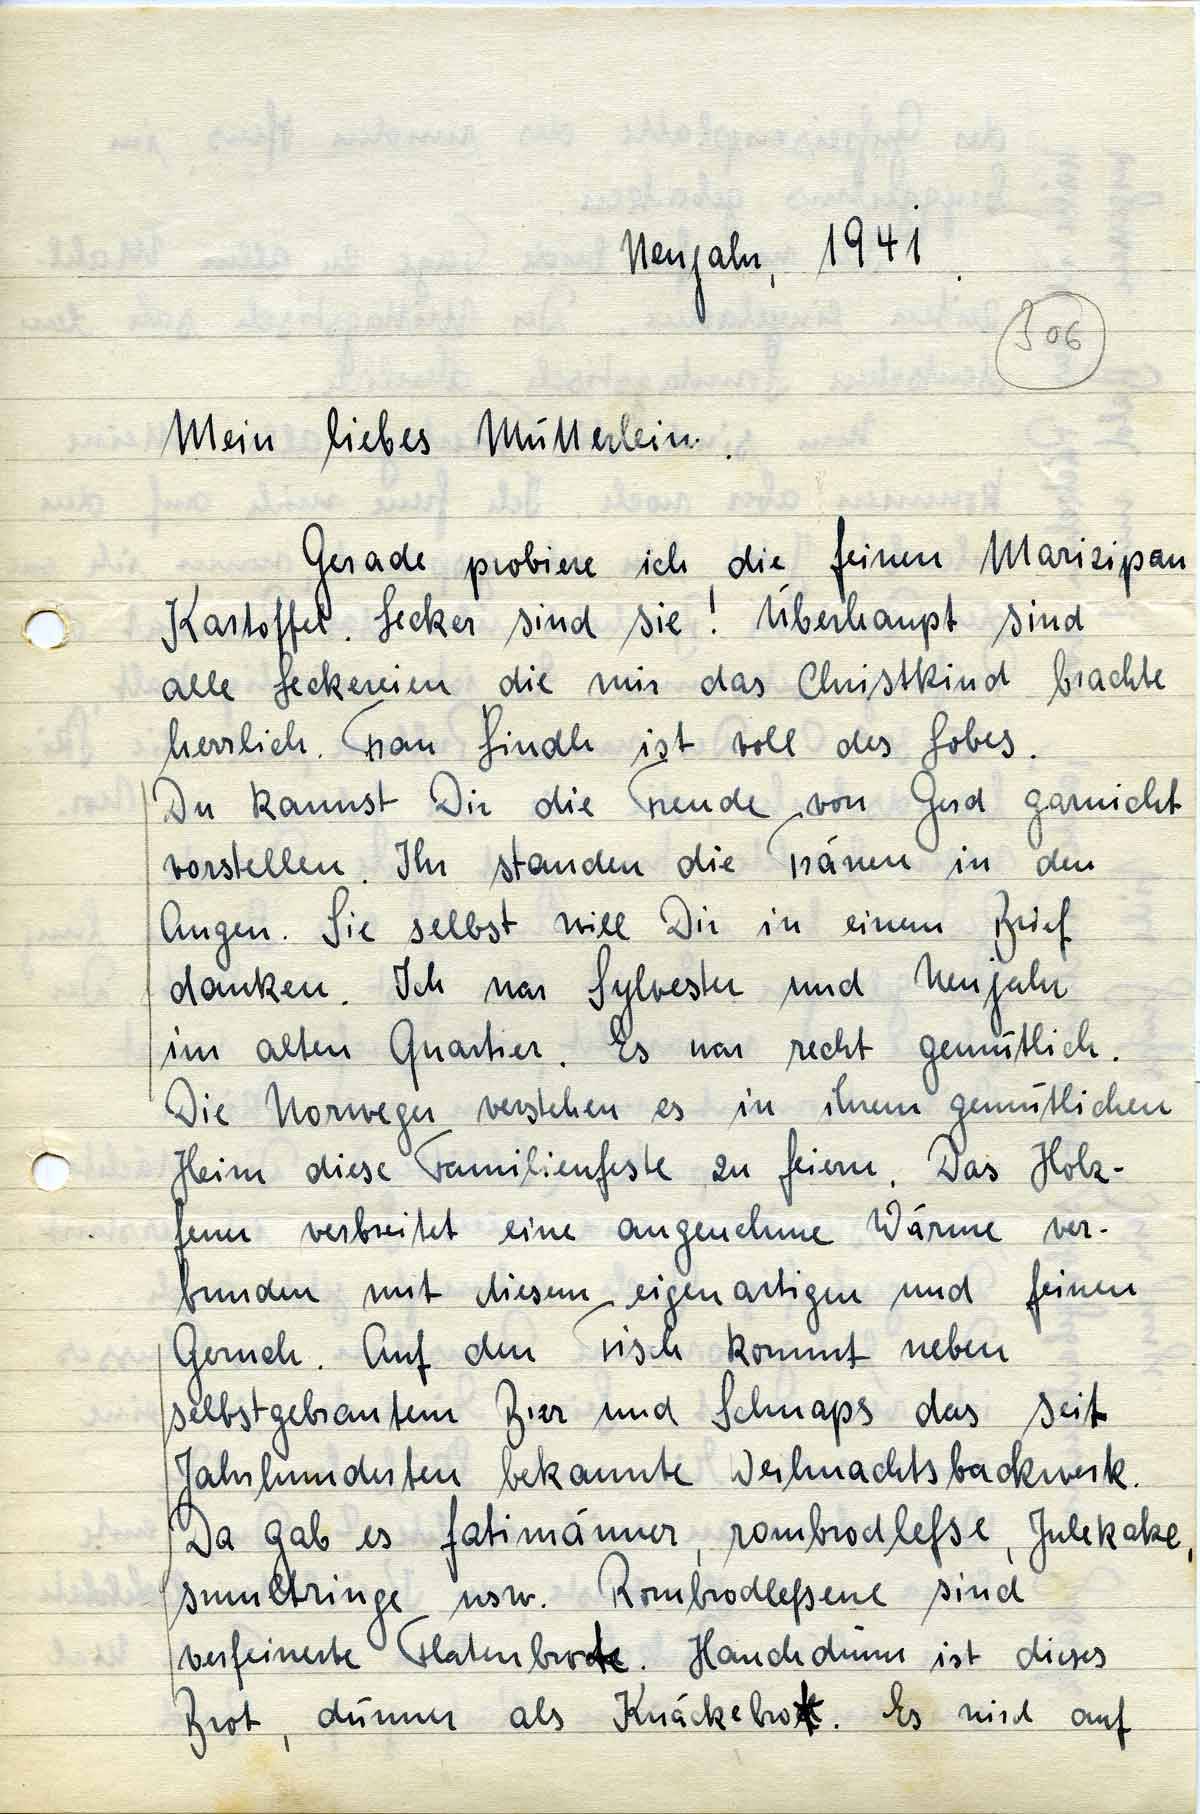 Neujahr, 1941.
306
Mein liebes Mütterlein.
Gerade probiere ich die feinen Marizipan
Kartoffel. Lecker sind sie! Überhaupt sind
alle Leckereien die mir das Christkind brachte
herrlich. Frau Lindh ist voll des Lobes.
Du kannst Dir die Freude von Gerd garnicht
vorstellen. Ihr standen die Tränen in den
Augen. Sie selbst will Dir in einem Brief
danken. Ich war Sylvester und Neujahr
im alten Quartier. Es war recht gemütlich.
Die Norweger verstehen es in ihrem gemütlichen
Heim diese Familienfeste zu feiern. Das Holz-
feuer verbreitet eine angenehme Wärme ver-
bunden mit diesem eigenartigen und feinen
Geruch. Auf den Tisch kommt neben
selbstgebrautem Bier und Schnaps das seit
Jahrhunderten bekannte Weihnachtsbackwerk.
Da gab es fatimänner, rombrodlefse, Julekake,
smultringe usw. Rombrodlefsene sind
verfeinerte Flatenbrote. Hauchdünn ist dieses
Brot, dünner als Knäckebrot. Es wird auf